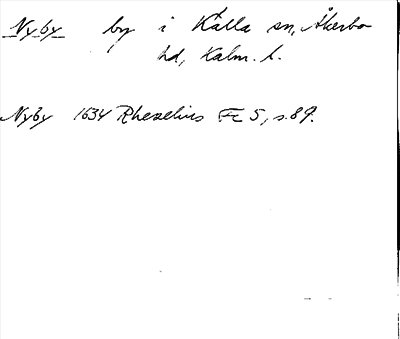 Nyby by i Källa sn, Åkerbo
hd, Kalm. l.
Nyby 1634 Rhezelius Fc 5, s. 89.